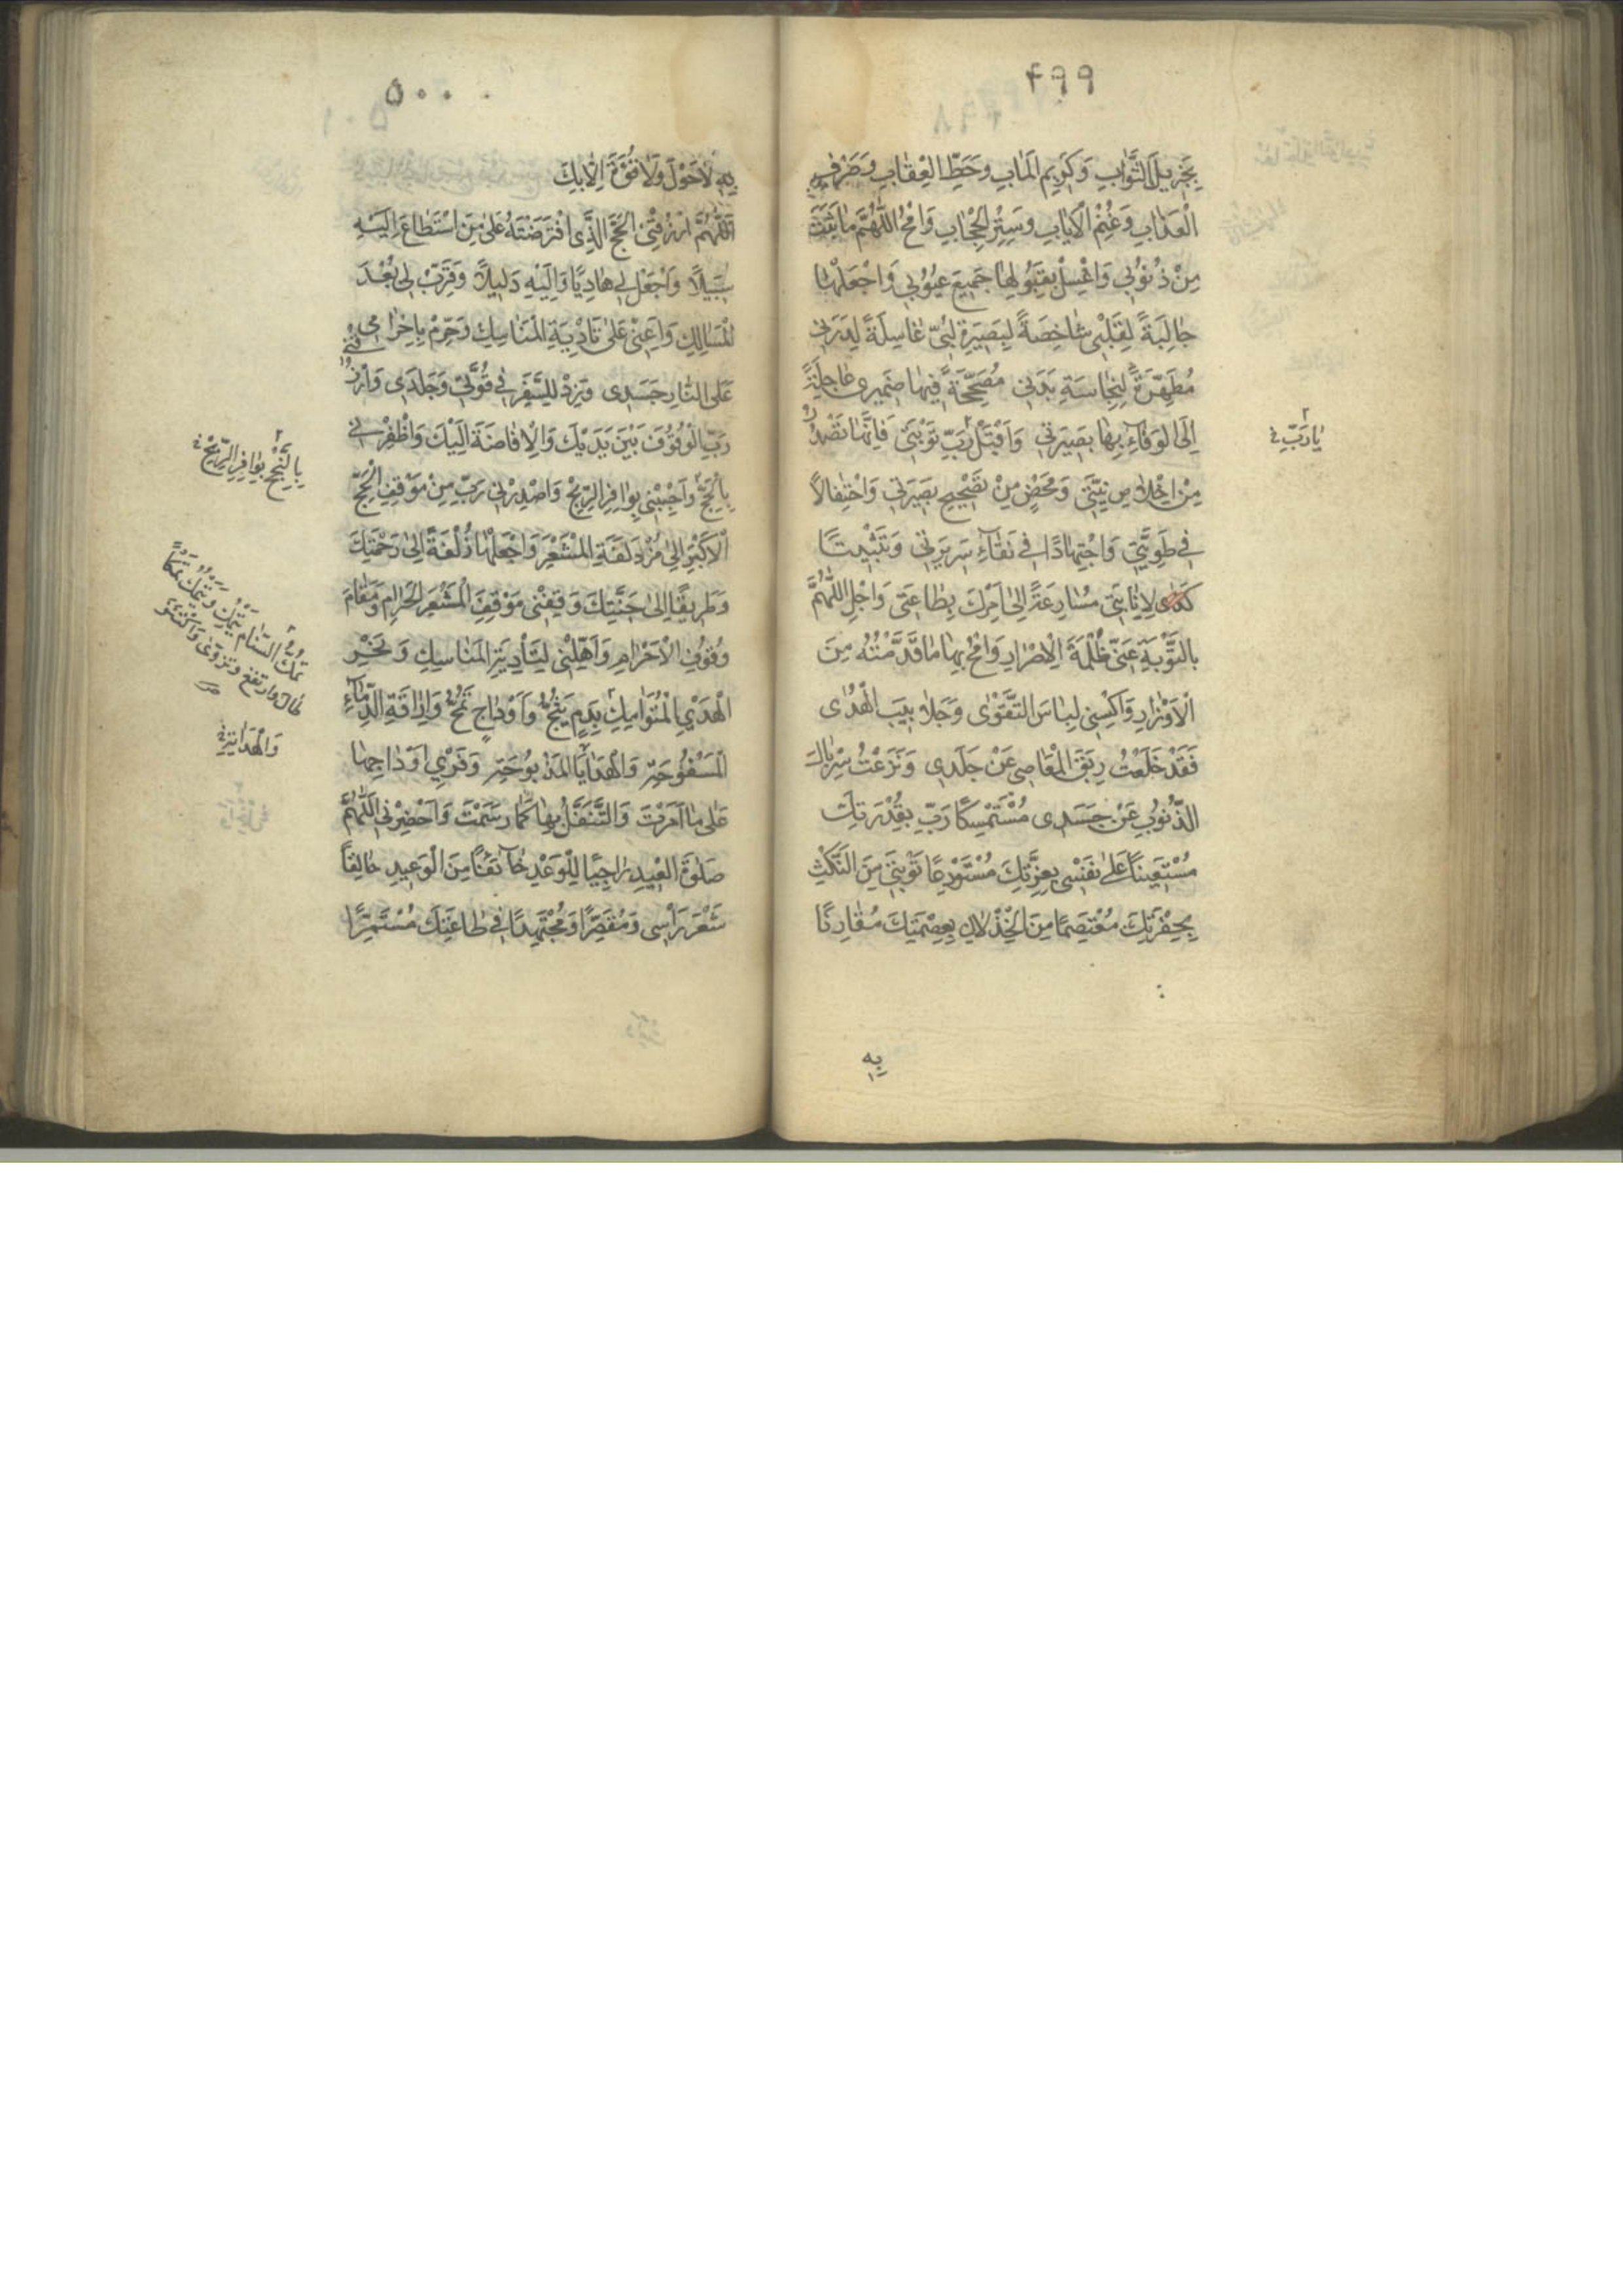 ۴۹۹
بِجَزِیلِ الثَّوٰابِ وَکَرِیمِ الْمَاٰبِ وَحَطِّ الْعِقٰابِ وَصَرْفِ
الْعَذٰابِ وَغُنْمِ الْاِیٰابِ وَسِتْرِ الْحِجٰابِ وَامْحُ اللّٰهُمَّ مٰا ثَبَتَ
مِنْ ذُنُوُبی وَاغْسِلْ بِقَبُولِهٰا جَمیٖعَ عُیُوُبی وَاجْعَلْهٰا
جٰالِبَةً لِقَلْبْی شٰاخِصَةً لِبَصیرَةِ لُبّیٖ غٰاسِلَةً لِدَرَنی
مُطَهِّرَةً لِنِجٰاسَةِ بَدَنی مُصَحِّحَةً فیٖهٰا ضَمیری عٰاجِلَةً
اِلَی الْوَفٰآءِ بِهٰا بَصیرَتی وَاقْبَلْ رَبِّ تَوْبَتیٖ فَاِنَّهٰا تَصْدُرُ
مِنْ اِخْلٰاصِ نِیَّتیٖ وَمَحْضٍ مِنْ تَصْحیٖحِ بَصیرَتی وَاحْتِفٰالًا
فی طَوِیَّتیٖ وَاجْتِهٰادًا فی نَقٰآءِ سَریرَتی وَتَثْبیٖتًا
لِاِنٰابَتیٖ مُسٰارِعَةً اِلیٰ اَمْرِكَ بِطٰاعَتیٖ وَاجْلُ اللّٰهُمَّ
بِالتَّوْبَةِ عَنّیٖ ظُلْمَةَ الْاِصْرٰارِ وَامْحُ بِهٰا مٰا قَدَّمْتُهُ مِنَ
الْاَوْزٰارِ وَاکْسِنی لِبٰاسَ التَّقْوٰی وَجَلٰابیٖبَ الْهُدٰی
فَقَدْ خَلَعْتُ رِبَقَ الْمَعٰاصی عَنْ جِلْدی وَنَزَعْتُ سِرْبٰالَ
الذُّنُوبِ عَنْ جَسَدی مُسْتَمْسِکًا رَبِّ بِقُدْرَتِكَ
مُسْتَعیٖنًا عَلیٰ نَفْسْی بِعِزَّتِكَ مُسْتَوْدِعًا تَوْبَتیٖ مِنَ النَّکْثِ
بِخِفْرَتِكَ مُعْتَصِمًا مِنَ الْخِذْلٰانِ بِعِصْمَتِكَ مُقٰارِنًا
بِهٖ
یٰا رَبِّ
۵۰۰
بِهٖ لٰاحَوْلَ وَلٰاقُوَّةَ اِلّٰا بِكَ
اَللّٰهُمَّ ارْزُقْنیٖ الْحَجَّ الَّذی افْتَرَضْتَهُ عَلیٰ مَنِ اسْتَطٰاعَ اِلَیْهِ
سَبیٖلًا وَاجْعَلْ لی هٰادِیًا وَاِلَیْهِ دَلیٖلًا وَقَرِّبْ لی بُعْدَ
الْمَسٰالِكِ وَاَعِنّیٖ عَلیٰ تَادِیَةِ الْمَنٰاسِكِ وَحَرِّمْ بِاِحْرٰامی
عَلَی النّٰارِ جَسَدی وَزِدْ لِلسَّفَرِ فی قُوَّتیٖ وَجَلَدی وَارْزُقْنیٖ
رَبِّ الْوُقُوُفَ بَیْنَ یَدَیْكَ وَالْاِفٰاضَةَ اِلَیْكَ وَاظْفِرْنی
وَاحْبْنی بِوٰافِرِ الرِّبْحِ وَاصْدِرْنی رَبِّ مِنْ مَوْقِفِ الْحَجِّ
الْاَکْبَرِ اِلیٰ مُزْدَلَفَةِ الْمَشْعَرِ وَاجْعَلْهٰا زُلْفَةً اِلیٰ رَحْمَتِكَ
وَطَریٖقًا اِلیٰ جَنَّتِكَ وَقِفْنی مَوْقِفَ الْمَشْعَرِ الْحَرٰامِ وَمَقٰامَ
وُقُوُفِ الْاَحْرٰامِ وَاَهِّلْنی لِتَأْدِیَةِ الْمَنٰاسِكِ وَنَحْرِ
الْهَدْیِ الْتَّوٰامِكِ بِدَمٍ یَثُجُّ وَاَوْدٰاجٍ تَمُجُّ وَاِرٰاقَةِ الدِّمٰآءِ
الْمَسْفُوحَةِ وَالْهَدٰایَا الْمَذْبُوحَةِ وَفَرْیِ اَوْدٰاجِهٰا
عَلیٰ مٰا اَمَرْتَ وَالتَّنَفُّلِ بِهٰا کَمٰا رَسَمْتَ وَاَحْضِرْنی اَللّٰهُمَّ
صَلٰوةَ الْعیٖدِ رٰاجِیًا لِلْوَعْدِ خٰآئِفًا مِنَ الْوَعیٖدِ حٰالِقًا
شَعْرَ رَأْسی وَمُقَصِّرًا وَمُجْتَهِدًا فی طٰاعَتِكَ مُشَمِّرًا
بِالنُّجْحِ بِوٰافِرِ الرِّبْحِ
تمك السّنام یَتْمِكُ وَیَتْمُكُ تمکًا
طال وارتفع وتروّیٰ واکتنز